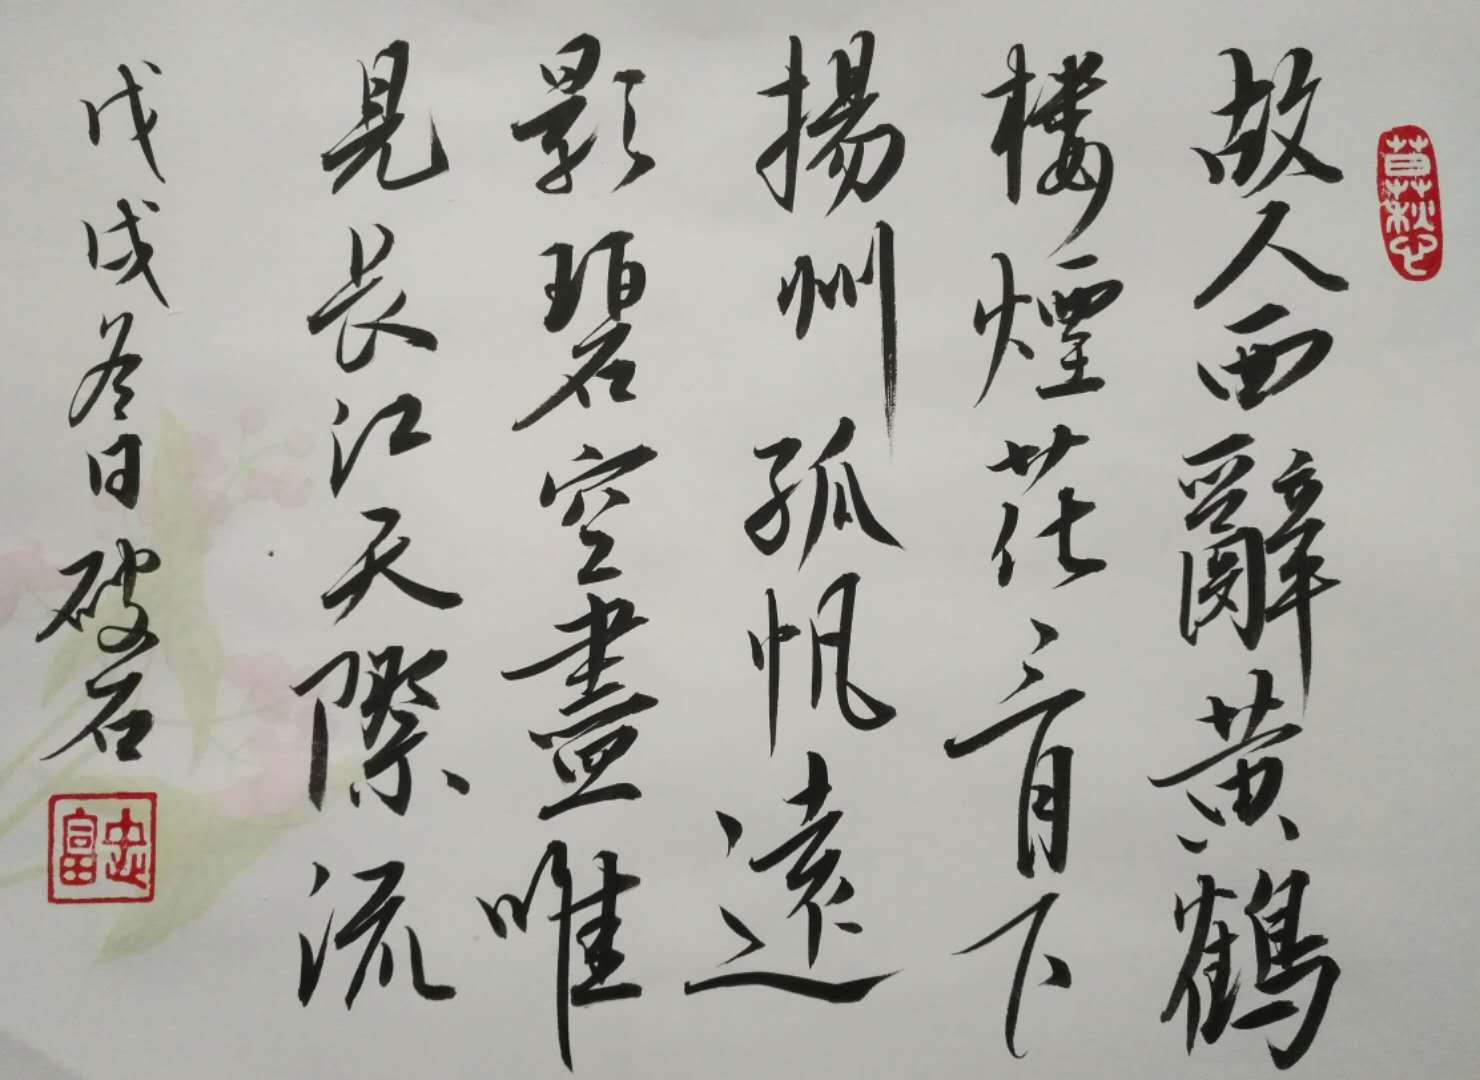 故人西辭黃鶴
樓煙花三月下
揚州孤帆遠
影碧空盡唯
見長江天際流
戊戌冬日破石
忠富